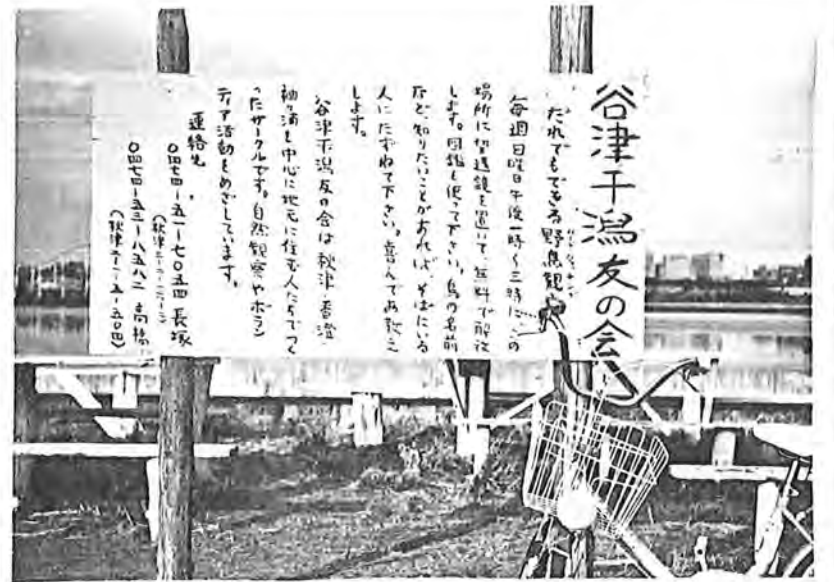 谷津干潟友の会
だれでもできる野鳥観
毎週日曜日午後一時〜三時にこの
場所に望遠鏡を置いて、無料で解放
します。図鑑も使って下さい。鳥の名前
など、知りたいことがあれば、そばにいる
人にたずねて下さい。喜んでお教え
します。
谷津干潟友の会は秋津・香澄・
袖ヶ浦を中心に地元に住む人たちでつく
ったサークルです。自然観察やボラン
ティア活動をめざしています。
連絡先
〇四七四ー五一ー七〇五四 長塚
〇四七四ー五三ー八五八二 高橋
(秋津五ー五ー五〇四)